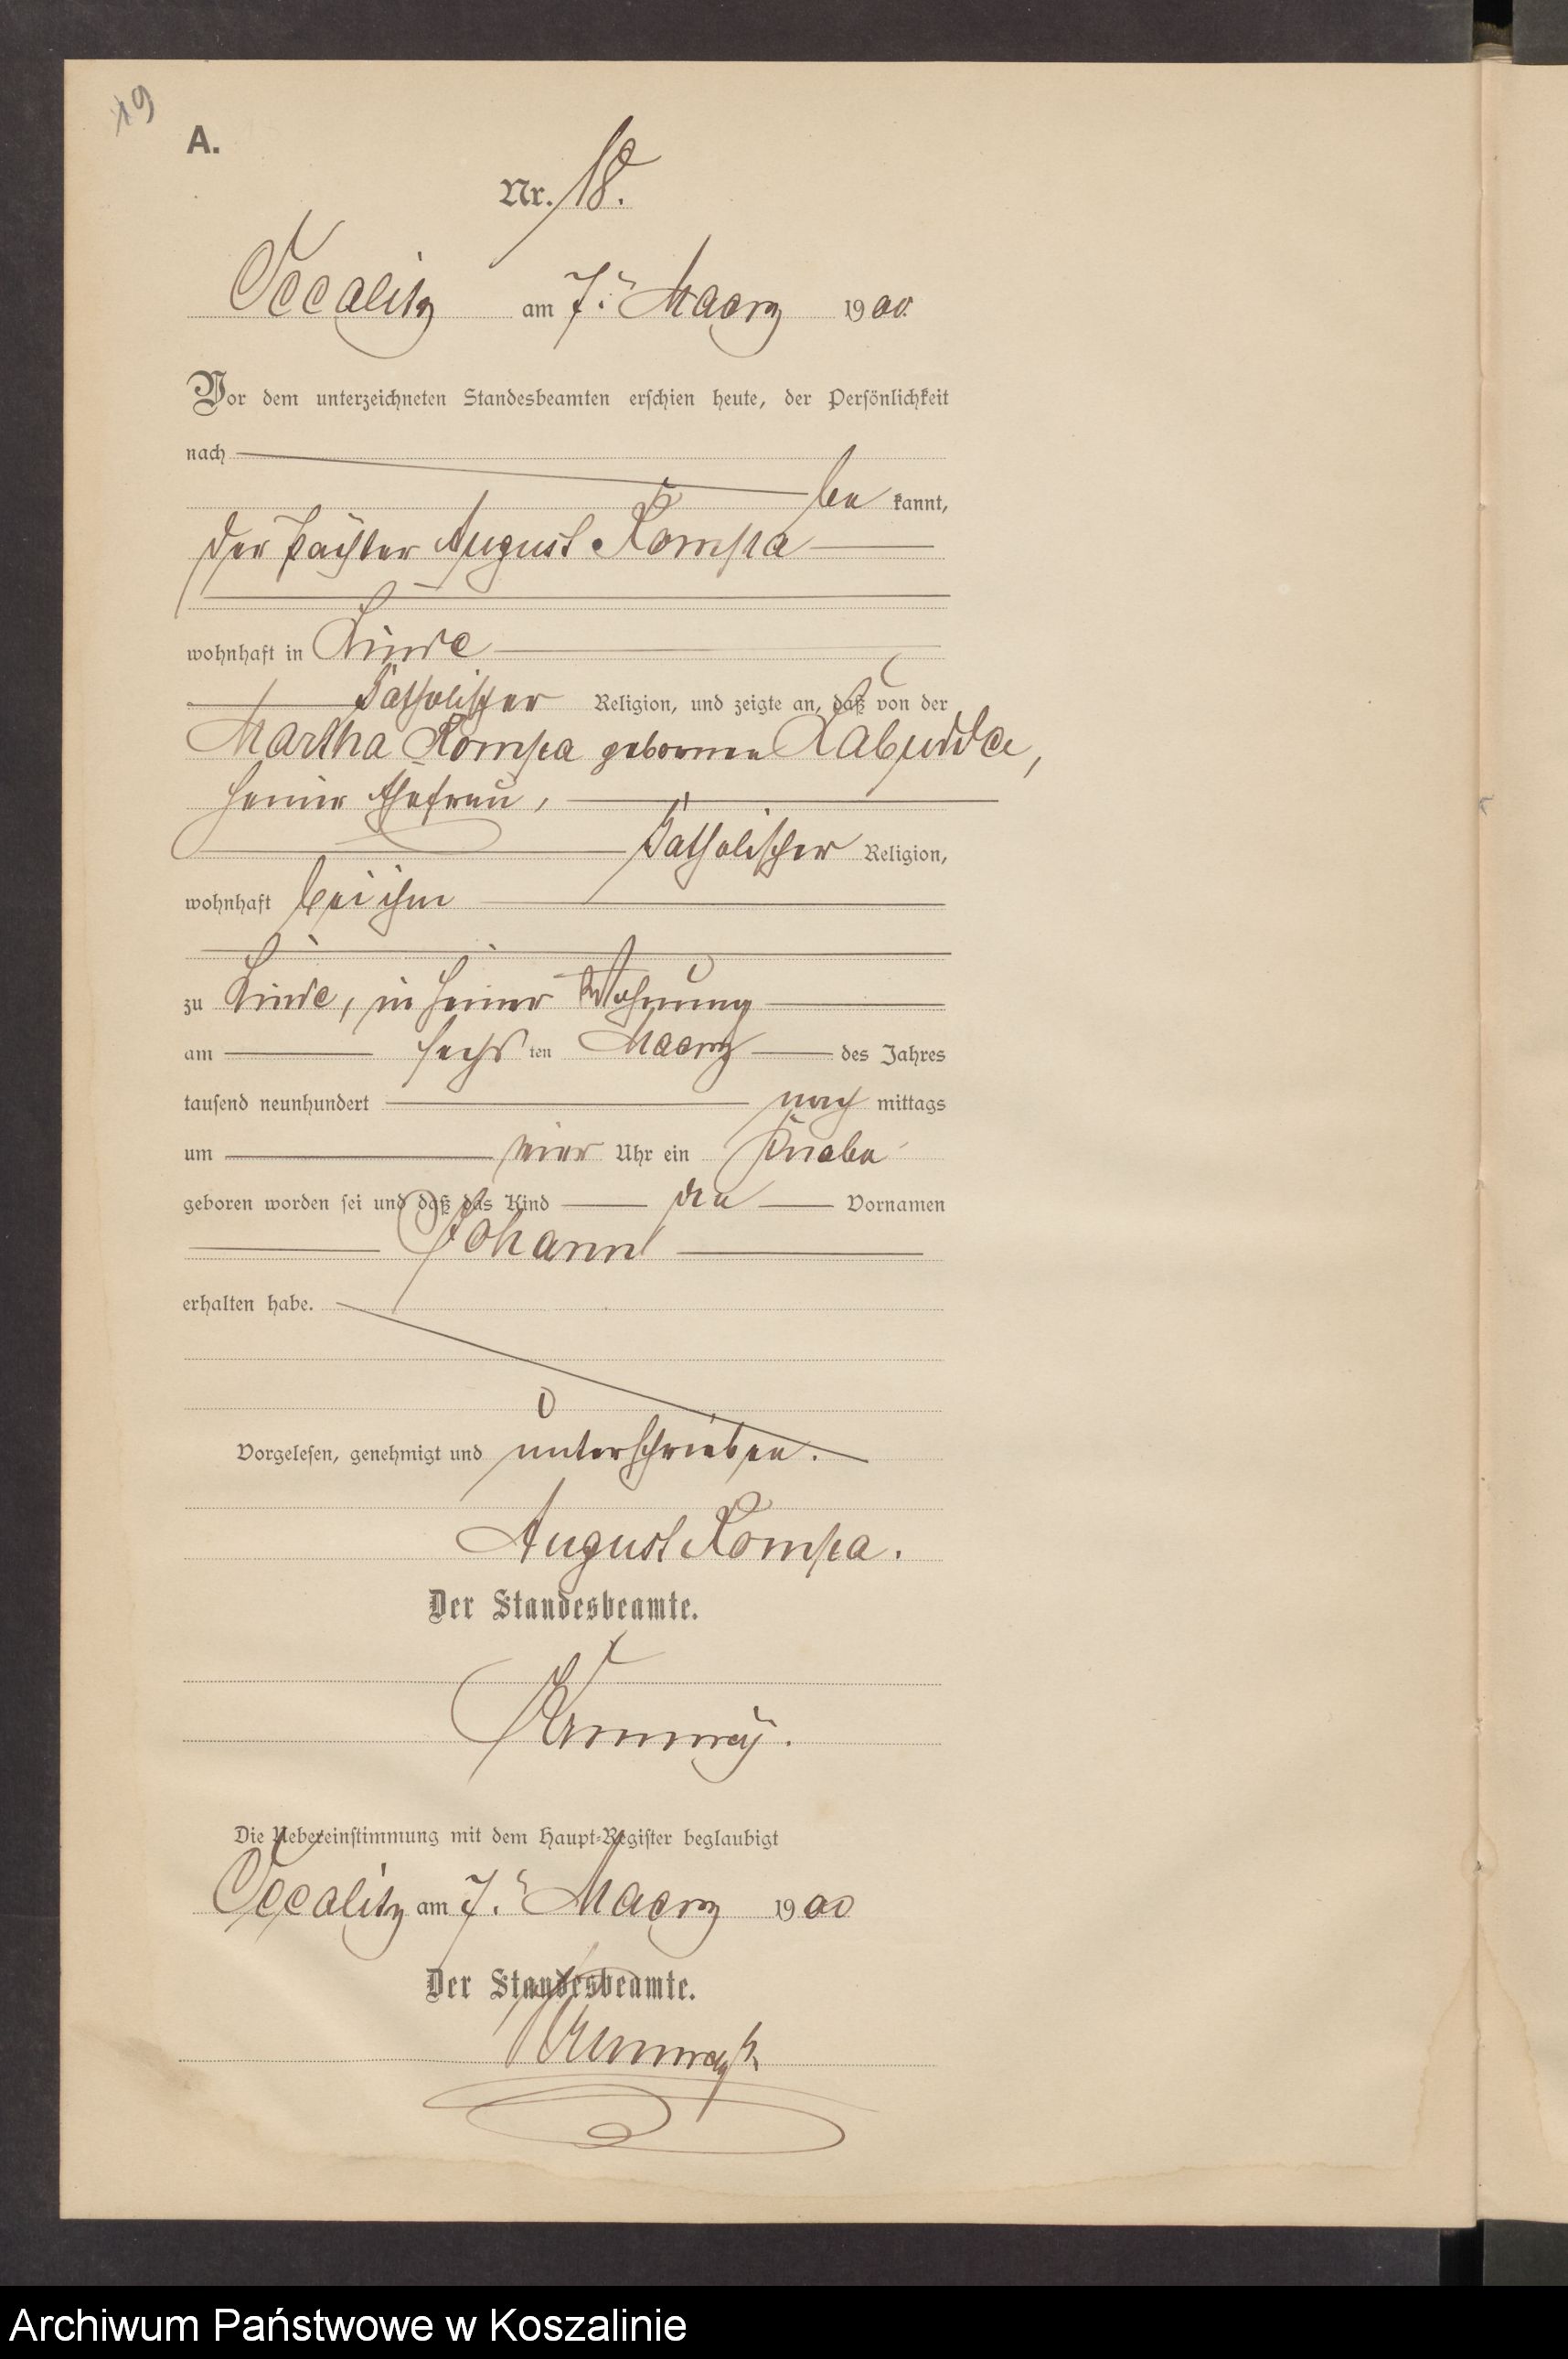 19
A.
Nr. 18.
am 7. Maerz 1900.
Vor dem unterzeichneten Standesbeamten erschien heute, der Persönlichkeit
nach
be kannt,
der Pächter August Kompa
wohnhaft in Linde
katholischer Religion, und zeigte an, daß von der
Martha Kompa geborenen Labudda,
seiner Ehefrau,
katholischer Religion,
wohnhaft bei ihm
zu Linde, in seiner Wohnung
am sechs ten Maerz des Jahres
tausend neunhundert nach mittags
um vier Uhr ein Knabe
geboren worden sei und daß das Kind den Vornamen
Johann
erhalten habe.
Vorgelesen, genehmigt und unterschrieben.
August Kompa.
Der Standesbeamte.
Die Uebereinstimmung mit dem Haupt-Register beglaubigt
am 7. Maerz 1900
Der Standesbeamte.
Archiwum Państwowe w Koszalinie